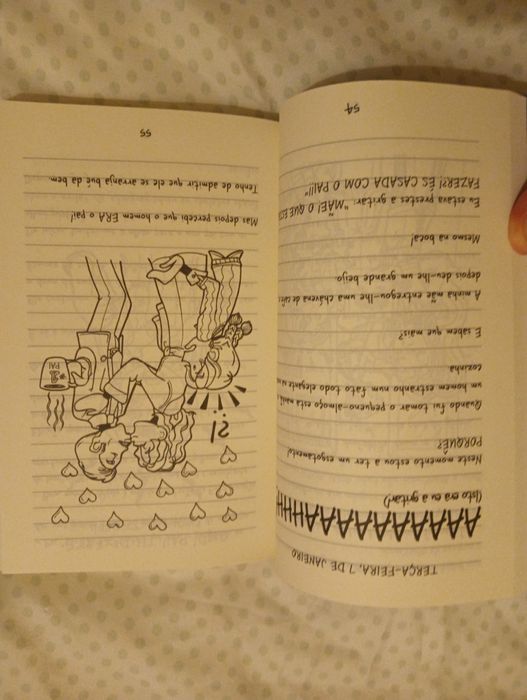 TERÇA-FEIRA, 7 DE JANEIRO
AAAAAAAAAHHH
(Isto era eu a gritar.)
Neste momento estou a ter um esgotamento!
PORQUÊ?
Quando fui tomar o pequeno-almoço esta manhã,
um homem estranho num fato elegante
cozinha.
E sabem que mais?
A minha mãe entregou-lhe uma chávena de café
depois deu-lhe um grande beijo.
Mesmo na boca!
Eu estava prestes a gritar: "MÃE! O QUE
FAZER?! ÉS CASADA COM O PAI!!"
54
?!
#1
PAI
Mas depois percebi que o homem ERA o pai!
Tenho de admitir que ele se arranja bué da bem.
55